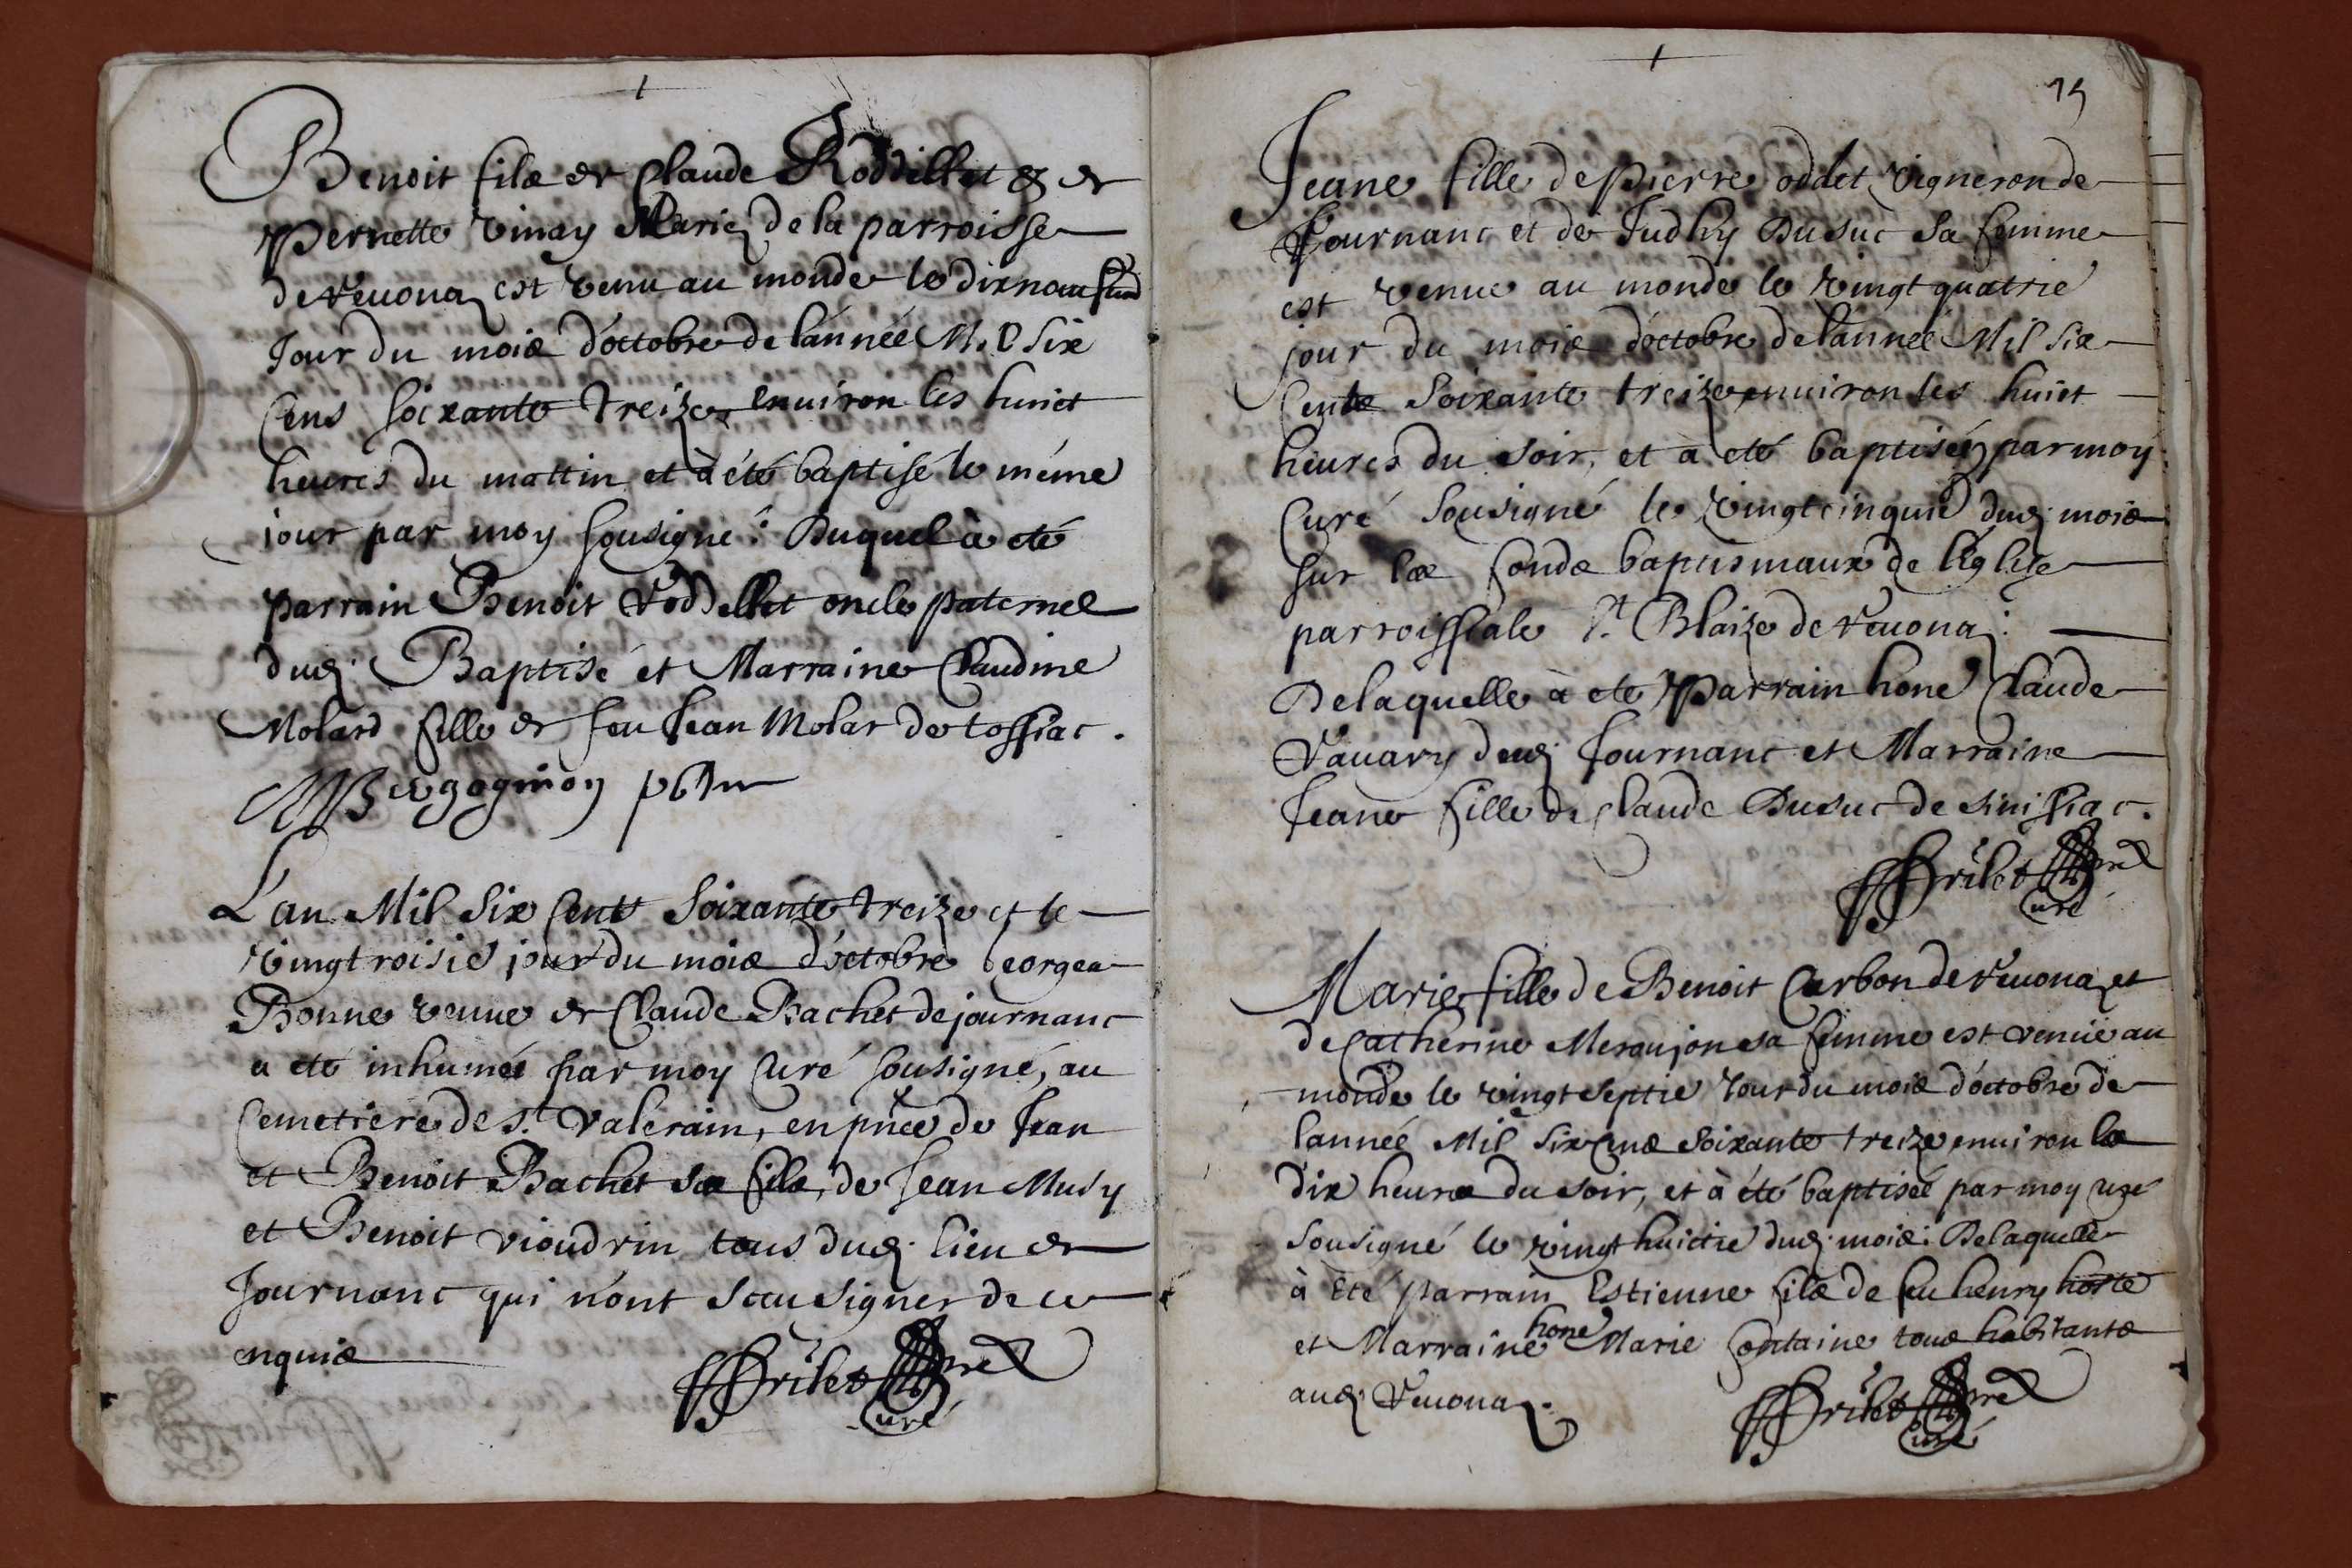 Benoit fils de Claude Roddillet & de
Pernette Vinay Mariez de la parroisse
de Reuonaz est venu au monde le dixneuf
Jour du mois d'octobre de lánnée Mil Six
Cens soixante treize enuiron les huict
heures du mattin et à été baptisé le méme
jour par moy sousigné: Duquel à eté
parrain Benoit Roddillet oncle paternel
dud: Baptisé et Marraine Claudine
Molard fille de feu Jean Molar de tossiac.
MBergognioy pbtre
L'an Mil Six Cents Soixante treize et le
vingtroisie jour du mois d'octobre Georgea
Bonne veuue de Claude Bachet de journanc
a eté inhumée par moy Curé sousigné, au
Cemetiere de St. Valerain, en pnce de Jean
et Benoit Bachet ses fils, de Jean Musy
et Benoit vioudrin tous dud: lieu de
Journanc qui n'ont sceu signer de ce
enquis
Brilet pre
Curé
75
Jeane fille de Pierre oddet vigneron de
Journanc et de Judhy Dusuc sa femme
est venue au monde le vingt quatrie
jour du mois d'octobre de lánnee Mil Six
Cents Soixante treize enuiron les huict
heures du soir, et a eté baptisée par moy
Curé Sousigné le vingtcinquie dud: mois
sur les fonds baptismaux de lÉglise
parroissiale St. Blaize de Reuonaz:
De laquelle à eté Parrain hone Claude
Rauary dud: Journanc et Marraine
Jeane fille de Claude Dusuc de sinissiac.
Brilet pre
Curé
Marie fille de Benoit Carbon de Reuonaz et
de Catherine Meraujon sa femme est venue au
monde le vingt septie Jour du mois d'octobre de
lannée Mil Six Cens Soixante treize enuiron les
dix heures du soir, et à été baptiseé par moy Curé
sousigné le vingt huictie dud: mois: De laquelle
à Eté parrain Estienne fils de feu henry hoste
et Marraine hone Marie fontaine tous habitants
aud: Reuonaz.
Brilet pre
Curé